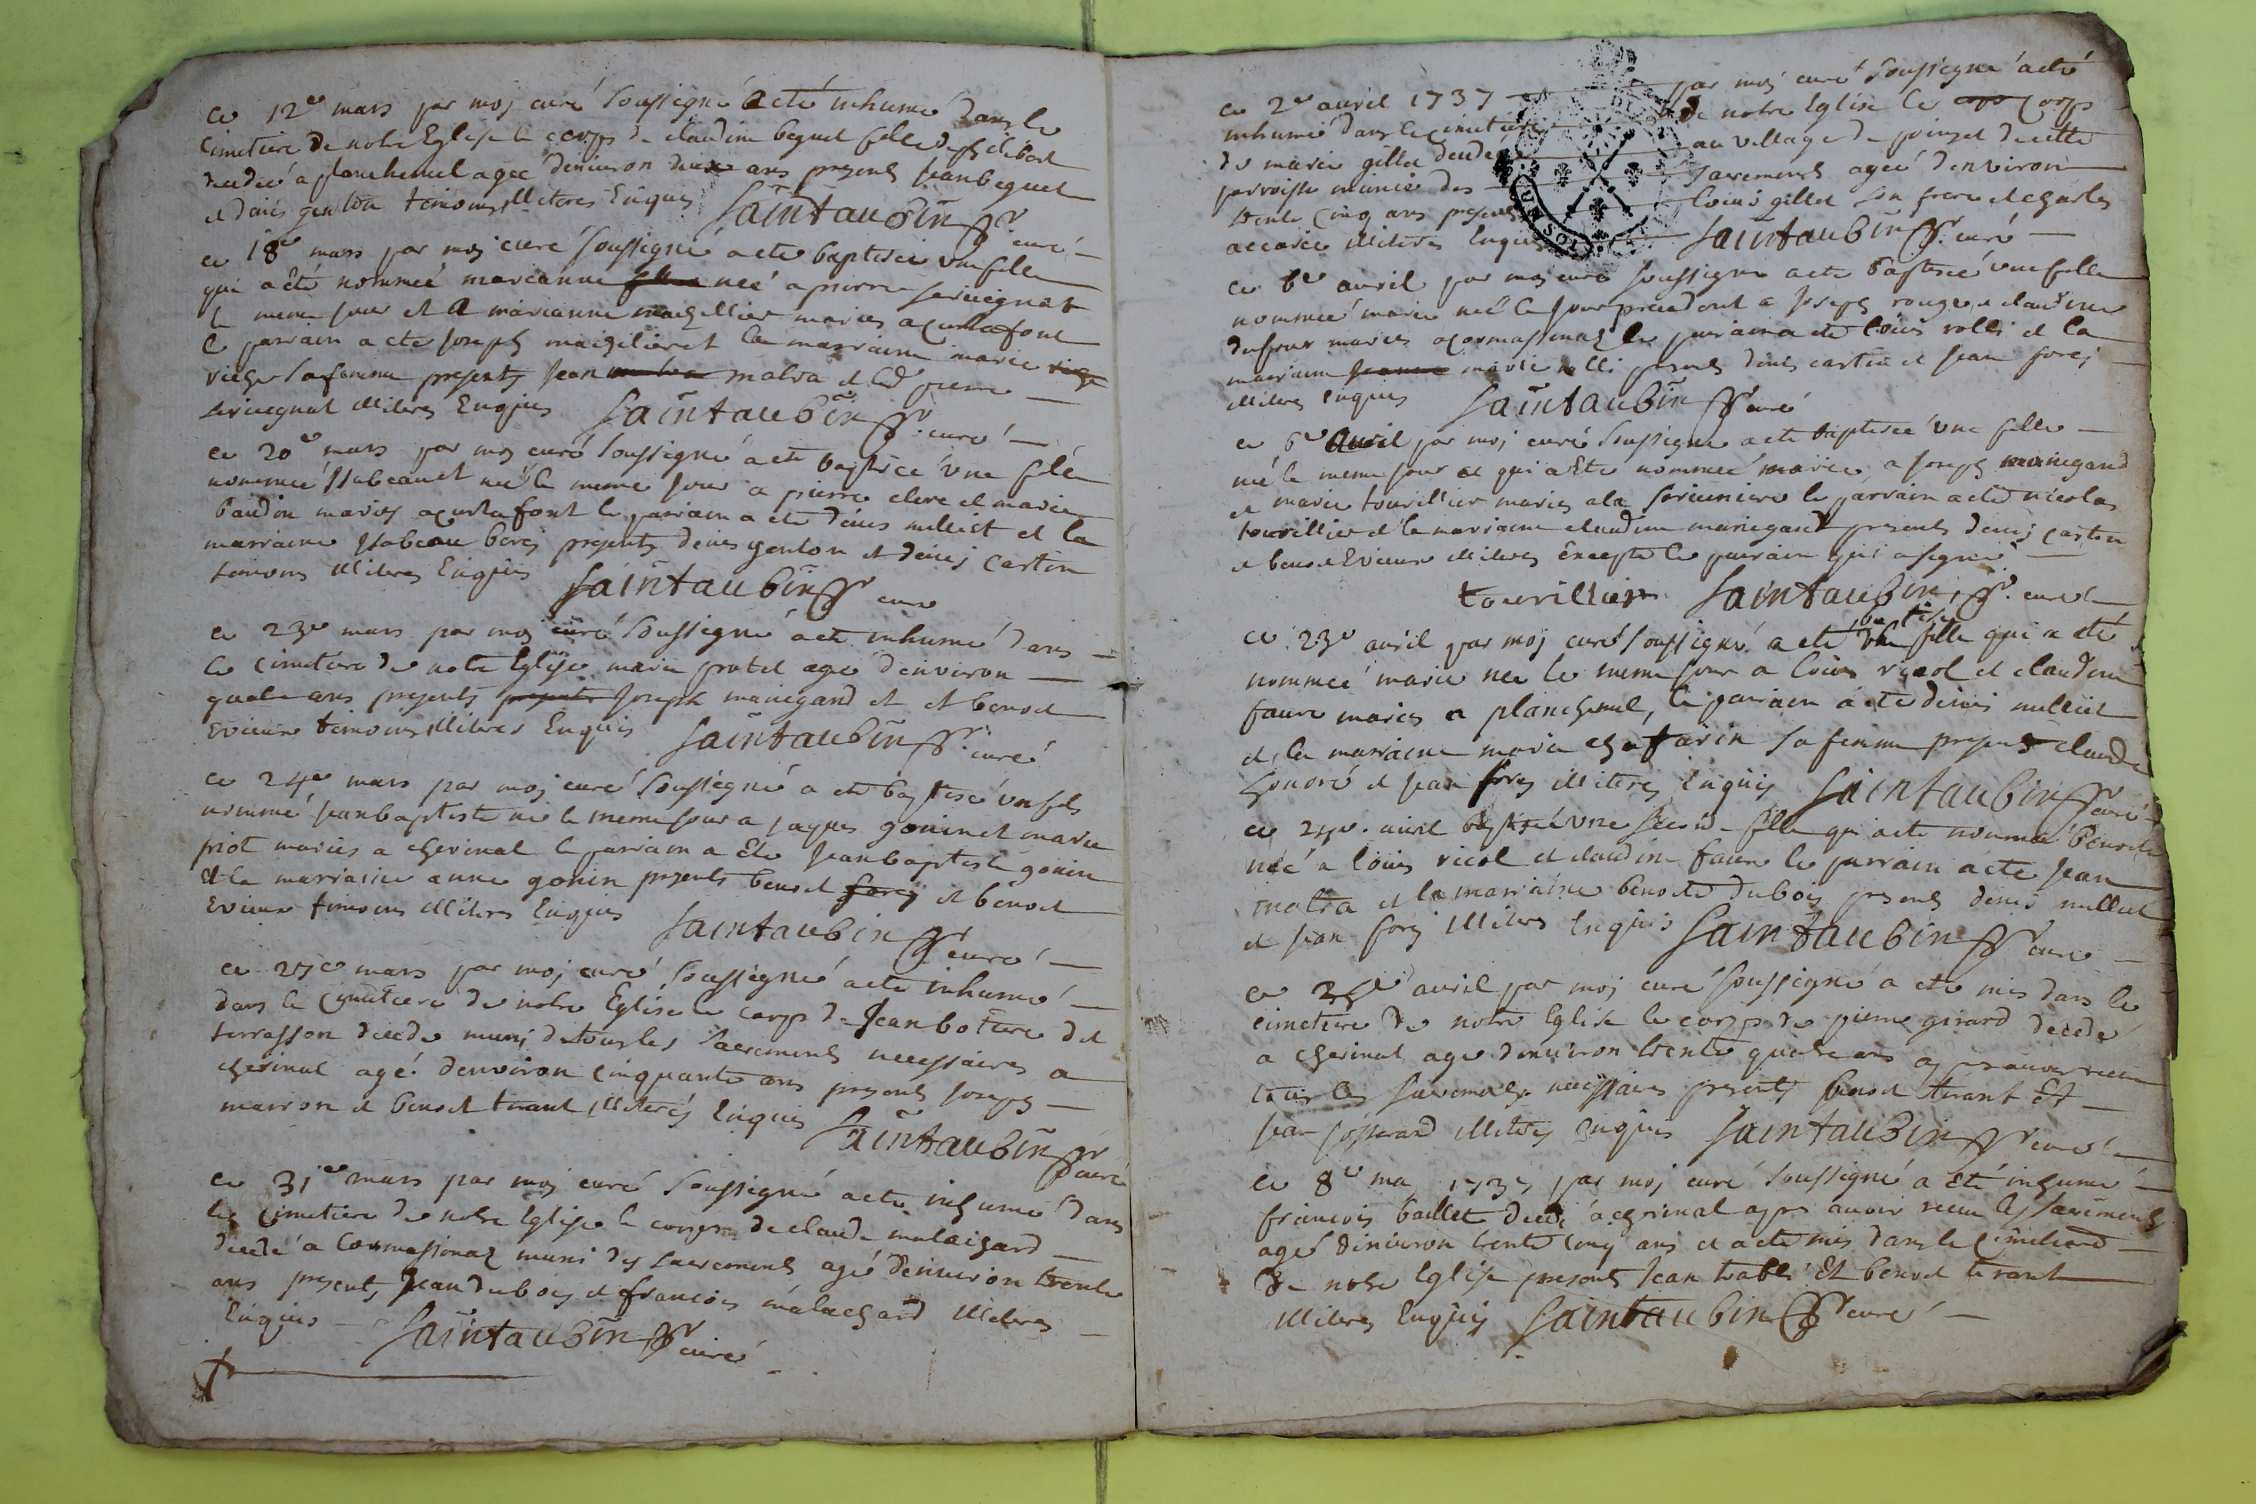 ce 12e mars par moj curé soussigné a eté inhumé dans le
cimetiere de notre Eglise le corps de claudine beguet fille de philibert
decedeé a planchemel agée d'environ deux ans presents jean beguet
et denis genton temoins illiteres Enquis Saintaubin curé
ce 18e mars par moj curé soussigné a eté baptiseé une fille
qui a êté nommeé marianne neé a pierre servignat
le meme jour et a marianne maizillier mariés a curtafont
le parrain a eté joseph maizilier et la marraine marie
viege sa femme presents jean matra et led pierre
servignat illiteres Enquis Saintaubin curé
ce 20e mars par moj curé soussigné a eté baptiseé une fille
nommeé isabeau et neé le meme jour a pierre clere et marie
baudin mariés a curtafont le parrain a eté denis milliet et la
marraine isabeau borej presents denis genton et denis cartin
temoins illiteres Enquis Saintaubin curé
ce 23e mars par moj curé soussigné a eté inhumé dans
le cimetiere de notre Eglise marie probel ageé d'environ
quatre ans presents joseph maniegand et et benoit
Evieux temoins illiteres Enquis Saintaubin curé
ce 24e mars par moj curé soussigné a eté baptisé un fils
nommé jean baptiste né le meme jour a jaques gonin et marie
piot mariés a cherinal le parrain a eté jean baptiste gonin
et la marraine anne gonin presents benoit forej et benoit
Evieux temoins illiteres Enquis Saintaubin curé
ce 27e mars par moj curé soussigné a eté inhumé
dans le cimetiere de notre Eglise le corps de jean bottere dit
terrasson decedé muni de tous les sacrements necessaires a
cherinal agé d'environ cinquante ans presents joseph
marron et benoit tirant illiterés Enquis Saintaubin curé
ce 31e mars par moj curé soussigné a eté inhumé dans
le cimetiere de notre Eglise le corps de claude malaizard
decedé a Cormassinaz muni des sacrements agé d'environ trente
ans presents jean dubois et francois malachard illiteres
Enquis Saintaubin curé
ce 2e avril 1737 par moj curé soussigné a eté
inhumé dans le cimetiere de notre Eglise le corps
de marie gillet decedeé au village de poinzet de cette
parroisse munie des sacrements ageé d'environ
trente cinq ans presents loüis gillet son frere et charles
accarie illiteres Enquis Saintaubin curé
ce 6e avril par moj curé soussigné a eté baptiseé une fille
nommeé marie neé le jour precedent a joseph rouge et claudine
dufour mariés a cormassinaz le parrain a eté loüis rolli et la
marraine marie rolli presents denis cartin et jean forej
illiteres enquis Saintaubin curé
ce 6e avril par moj curé soussigné a eté baptiseé une fille
neé le meme jour et qui a Eté nommeé marie a joseph maniegand
et marie tourillier mariés a la le parrain a eté nicolas
tourillier et la marraine claudine maniegand presents denis cartin
et benoit Evieux illiteres êxcepté le parrain qui a signé
tourillier Saintaubin curé
ce 23e avril par moj curé soussigné a eté baptisé une fille qui a eté
nommeé marie neé le meme jour a loüis ricol et claudine
faure mariés a planchemel, le parrain a eté denis milliet
et la marraine marie chafarin sa femme presents claude
honoré et jean forej illiteres Enquis Saintaubin curé
ce 24e avril baptisé une seconde fille qui a eté nommeé benoite
neé a loüis ricol et claudine faure le parrain a eté jean
matra et la marraine benoite dubois presents denis milliet
et jean forej illiteres Enquis Saintaubin curé
ce avril par moj curé soussigné a eté mis dans le
cimetiere de notre Eglise le corps de pierre girard decedé
a cherinal agé d'environ trente quatre ans apres avoir receu
tous les sacrements necessaires presents benoit tirant Et
jean josserand illiteres Enquis Saintaubin curé
ce 8e maj 1737 par moj curé soussigné a Eté inhumé
francois baillet decedé a cherinal apres avoir receu les sacrements
agé d'environ trente cinq ans et a eté mis dans le cimetiere
de notre Eglise presents jean trablé Et benoit tirant
illiteres Enquis Saintaubin curé